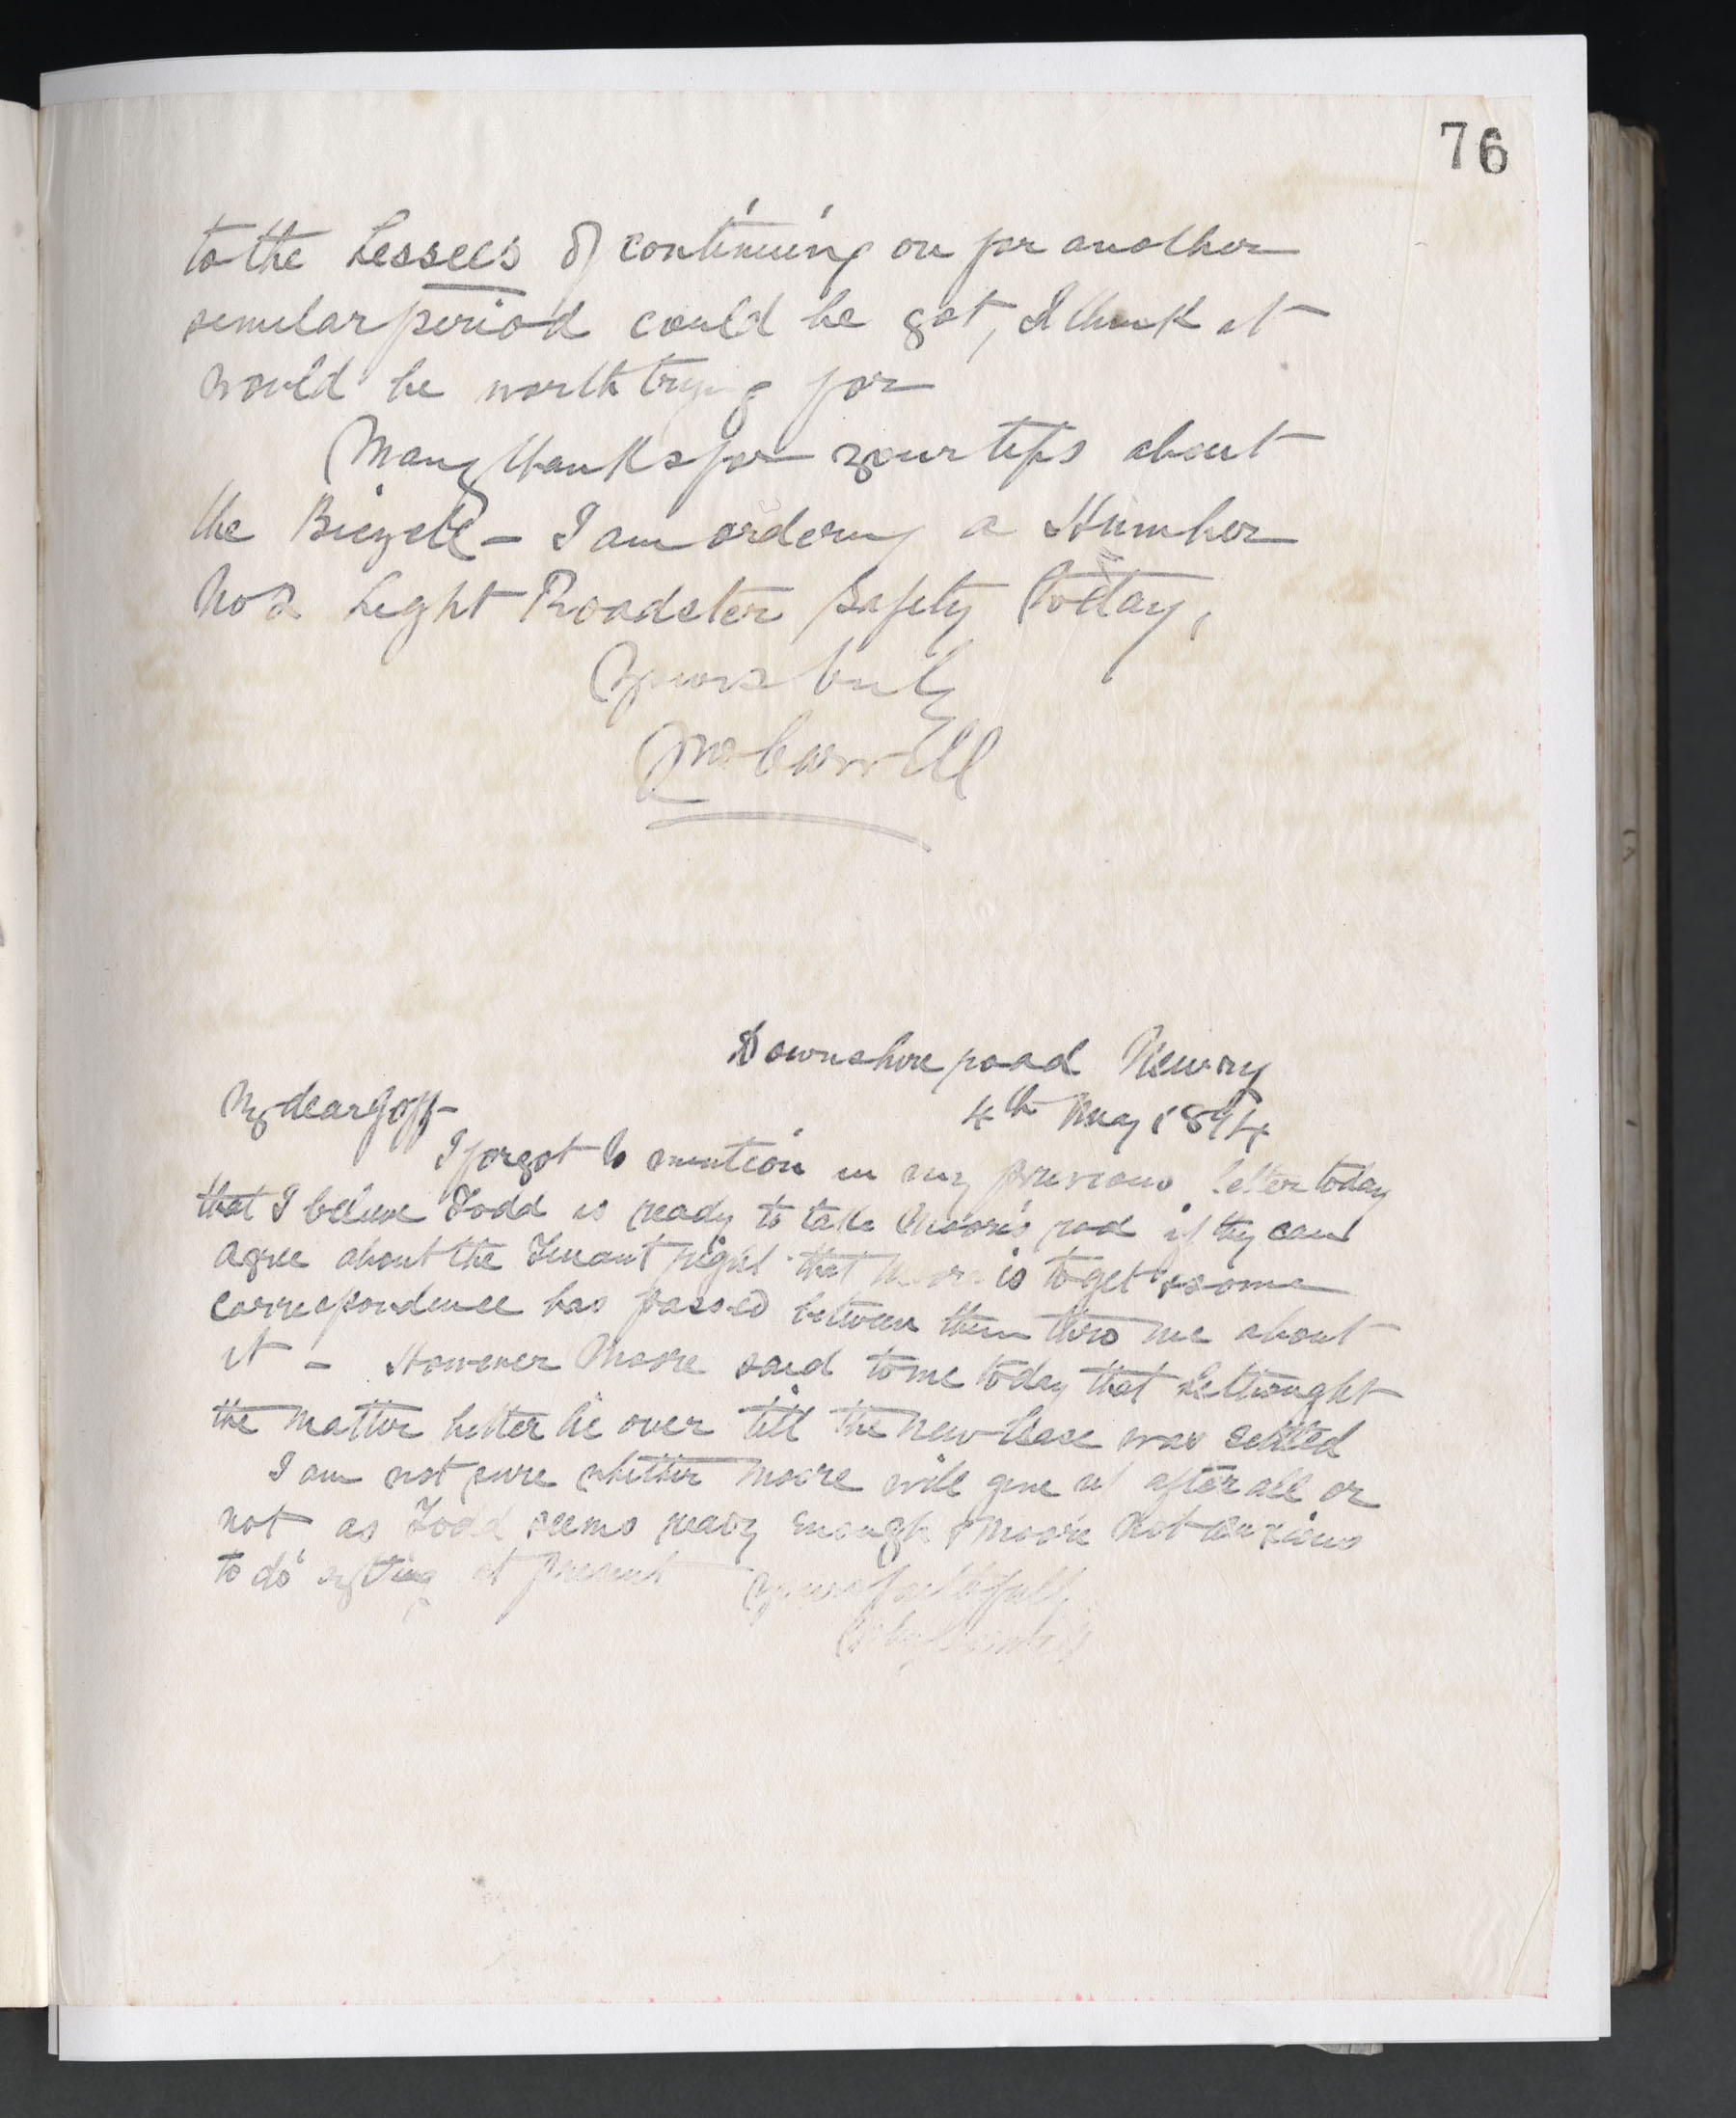 76
to the Lessees of continuing on for another
similar period could be got, I think it
would be worth trying for
Many thanks for your tips about
the Bicycle - I am ordering a Humber
No 2 Light Roadster Safety today,
Yours truly
Downshire road Newry
4th May 1894
My dear Goff-
I forgot to mention in my previous letter today
that I believe Todd is ready to take Moore's rod if they can
agree about the Tenant right that Moore is to get & some
correspondence has passed between them thro me about
it - However Moore said to me today that he thought
the matter better lie over till the new lease was settled
I am not sure whether Moore will give up after all or
not as Todd seems ready enough & Moore not anxious
to do anything at present Yours faithfully